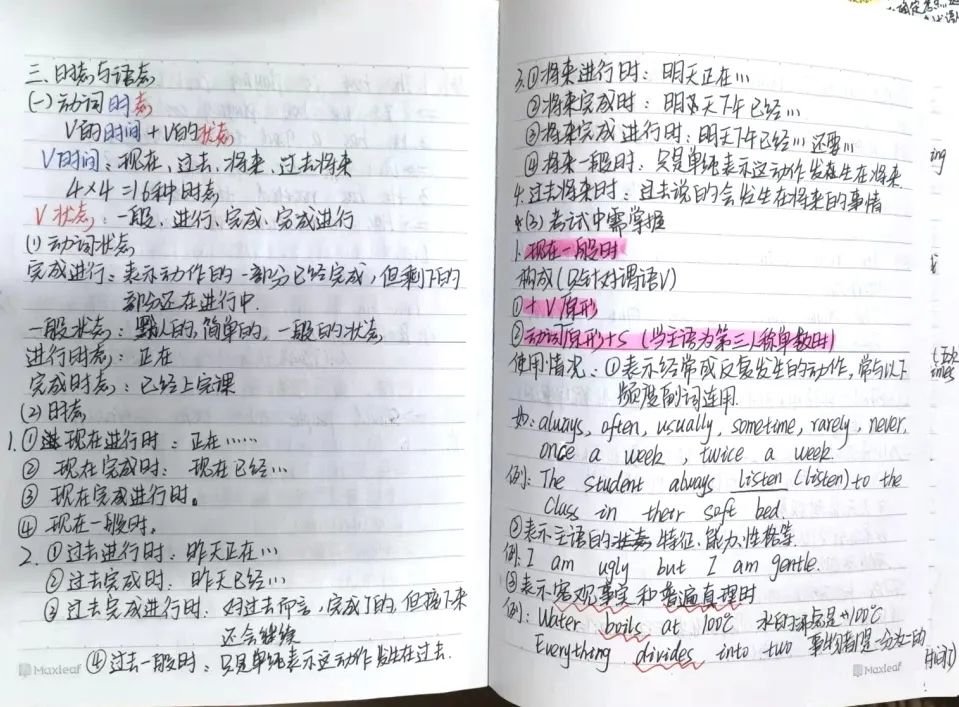 三.时态与语态
(一)动词时态
V的时间+V的状态
V时间：现在,过去.将来.过去将来
4×4=16种时态
V状态：一般、进行、完成、完成进行
(1)动词状态
完成进行：表示动作的一部分已经完成，但剩下的
部分还在进行中.
一般状态：默认的,简单的,一般的状态
进行时态：正在
完成时态：已经上完课
(2)时态
1.①现在进行时：正在……
② 现在完成时：现在已经…
③ 现在完成进行时。
④ 现在一般时。
2.①过去进行时：昨天正在…
②过去完成时：昨天已经…
③过去完成进行时：对过去而言,完成了的,但接下来
还会继续
④过去一般时：只是单纯表示这动作发生在过去.
Maxleaf
3.①将来进行时：明天正在…
②将来完成时：明天下午已经…
③将来完成进行时：明天下午已经…还要…
④将来一般时：只是单纯表示这动作发生在将来.
4.过去将来时：过去说的会发生在将来的事情
(3)考试中需掌握
1.现在一般时
构成(只针对谓语V)
①+V原形
②动词原形+s(当主语为第三人称单数时)
使用情况：①表示经常或反复发生的动作,常与以下
频度副词连用.
如：always, often, usually, sometime, rarely, never.
once a week, twice a week.
例：The student always listen (listen) to the
class in their soft bed.
②表示主语的状态 特征.能力.性格等
例：I am ugly but I am gentle.
③表示客观事实和普遍真理时
例：Water boils at 100℃ 水的沸点是100℃
Everything divides into two 事物都是一分为二的
Maxleaf
ing